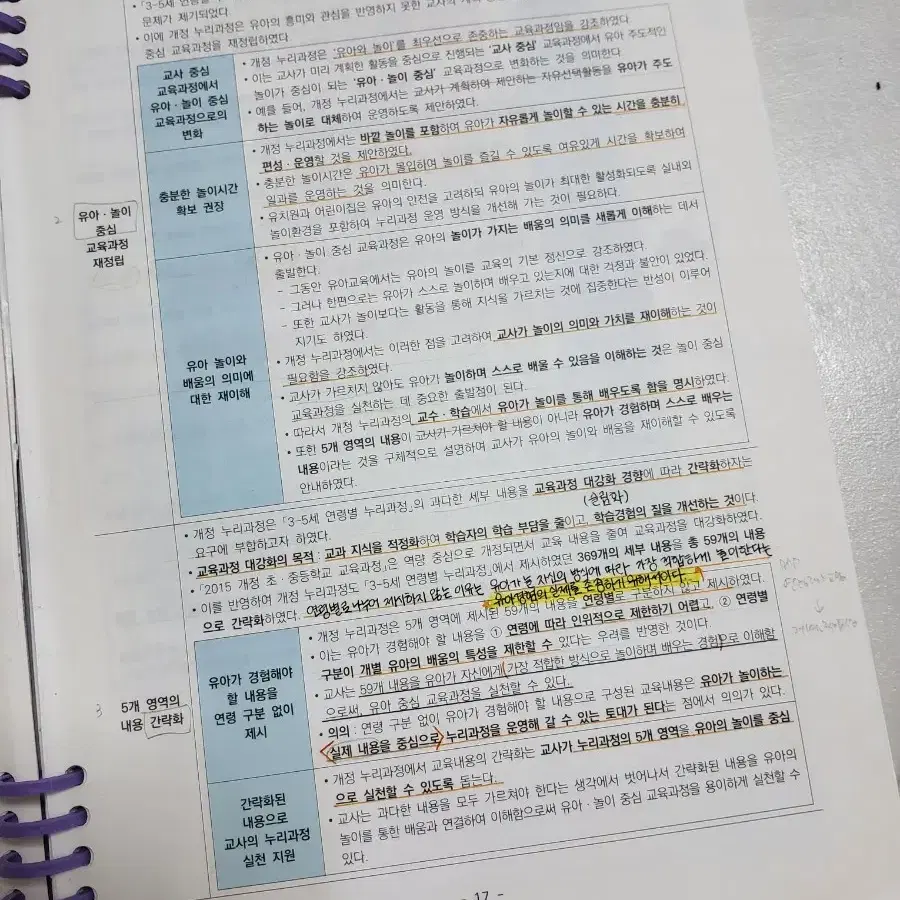 • 「3-5세 연령별 누
문제가 제기되었다.
• 이에 개정 누리과정은 유아의 흥미와 관심을 반영하지 못한 교사의 계획
중심 교육과정을 재정립하였다.
2
유아·놀이
중심
교육과정
재정립
교사 중심
교육과정에서
유아·놀이 중심
교육과정으로의
변화
• 개정 누리과정은 '유아와 놀이'를 최우선으로 존중하는 교육과정임을 강조하였다.
• 이는 교사가 미리 계획한 활동을 중심으로 진행되는 '교사 중심' 교육과정에서 유아 주도적인
놀이가 중심이 되는 '유아·놀이 중심' 교육과정으로 변화하는 것을 의미한다.
• 예를 들어, 개정 누리과정에서는 교사가 계획하여 제안하는 자유선택활동을 유아가 주도
하는 놀이로 대체하여 운영하도록 제안하였다.
충분한 놀이시간
확보 권장
• 개정 누리과정에서는 바깥 놀이를 포함하여 유아가 자유롭게 놀이할 수 있는 시간을 충분히
편성·운영할 것을 제안하였다.
• 충분한 놀이시간은 유아가 몰입하여 놀이를 즐길 수 있도록 여유있게 시간을 확보하여
일과를 운영하는 것을 의미한다.
• 유치원과 어린이집은 유아의 안전을 고려하되 유아의 놀이가 최대한 활성화되도록 실내외
놀이환경을 포함하여 누리과정 운영 방식을 개선해 가는 것이 필요하다.
유아 놀이와
배움의 의미에
대한 재이해
• 유아·놀이 중심 교육과정은 유아의 놀이가 가지는 배움의 의미를 새롭게 이해하는 데서
출발한다.
– 그동안 유아교육에서는 유아의 놀이를 교육의 기본 정신으로 강조하였다.
– 그러나 한편으로는 유아가 스스로 놀이하며 배우고 있는지에 대한 걱정과 불안이 있었다.
– 또한 교사가 놀이보다는 활동을 통해 지식을 가르치는 것에 집중한다는 반성이 이루어
지기도 하였다.
• 개정 누리과정에서는 이러한 점을 고려하여, 교사가 놀이의 의미와 가치를 재이해하는 것이
필요함을 강조하였다.
• 교사가 가르치지 않아도 유아가 놀이하며 스스로 배울 수 있음을 이해하는 것은 놀이 중심
교육과정을 실천하는 데 중요한 출발점이 된다.
• 따라서 개정 누리과정의 교수·학습에서 유아가 놀이를 통해 배우도록 함을 명시하였다.
• 또한 5개 영역의 내용이 교사가 가르쳐야 할 내용이 아니라 유아가 경험하며 스스로 배우는
내용이라는 것을 구체적으로 설명하여 교사가 유아의 놀이와 배움을 재이해할 수 있도록
안내하였다.
3
5개 영역의
내용 간략화
• 개정 누리과정은 「3-5세 연령별 누리과정」의 과다한 세부 내용을 교육과정 대강화 경향에 따라 간략화하자는
(슬림화)
요구에 부합하고자 하였다.
• 교육과정 대강화의 목적 : 교과 지식을 적정화하여 학습자의 학습 부담을 줄이고, 학습경험의 질을 개선하는 것이다.
• 「2015 개정 초·중등학교 교육과정」은 역량 중심으로 개정되면서 교육 내용을 줄여 교육과정을 대강화하였다.
• 이를 반영하여 개정 누리과정도 「3-5세 연령별 누리과정」에서 제시하였던 369개의 세부 내용을 총 59개의 내용
으로 간략화하였다.
연령별로 나누어 제시하지 않는 이유는 유아가 놀 자신의 방식에 따라 가장 적합하게 놀이한다는
유아경험의 실제를 존중하기 위해서이다.
유아가 경험해야
할 내용을
연령 구분 없이
제시
• 개정 누리과정은 5개 영역에 제시된 59개의 내용을 연령별로 구분하지 않고 제시하였다.
• 이는 유아가 경험해야 할 내용을 ① 연령에 따라 인위적으로 제한하기 어렵고, ② 연령별
구분이 개별 유아의 배움의 특성을 제한할 수 있다는 우려를 반영한 것이다.
• 교사는 59개 내용을 유아가 자신에게 가장 적합한 방식으로 놀이하며 배우는 경험으로 이해함
으로써, 유아 중심 교육과정을 실천할 수 있다.
• 의의 : 연령 구분 없이 유아가 경험해야 할 내용으로 구성된 교육내용은 유아가 놀이하는
실제 내용을 중심으로 누리과정을 운영해 갈 수 있는 토대가 된다는 점에서 의의가 있다.
간략화된
내용으로
교사의 누리과정
실천 지원
• 개정 누리과정에서 교육내용의 간략화는 교사가 누리과정의 5개 영역을 유아의 놀이를 중심
으로 실천할 수 있도록 돕는다.
• 교사는 과다한 내용을 모두 가르쳐야 한다는 생각에서 벗어나서 간략화된 내용을 유아의
놀이를 통한 배움과 연결하여 이해함으로써 유아·놀이 중심 교육과정을 용이하게 실천할 수
있다.
- 17 -